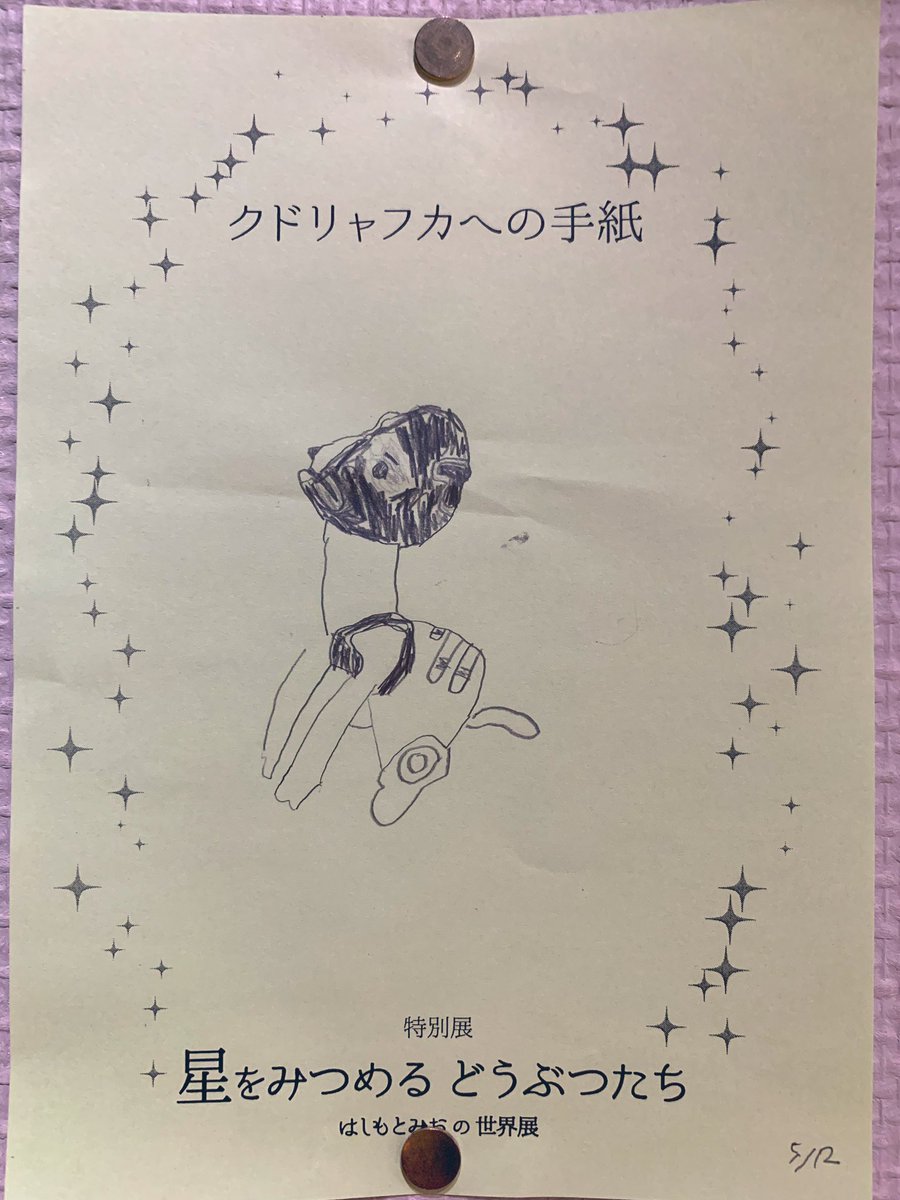 クドリャフカへの手紙
特別展
星をみつめる どうぶつたち
はしもとみお の 世界展
5/12